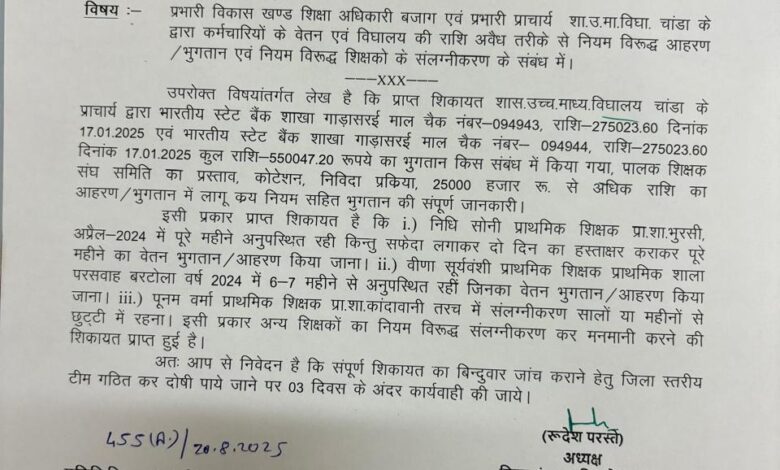 विषय :- प्रभारी विकास खण्ड शिक्षा अधिकारी बजाग एवं प्रभारी प्राचार्य शा.उ.मा.विघा. चांडा के
द्वारा कर्मचारियों के वेतन एवं विघालय की राशि अवैध तरीके से नियम विरूद्ध आहरण
/भुगतान एवं नियम विरूद्ध शिक्षको के संलग्नीकरण के संबंध में।
---xxx---
उपरोक्त विषयांतर्गत लेख है कि प्राप्त शिकायत शास.उच्च.माध्य.विघालय चांडा के
प्राचार्य द्वारा भारतीय स्टेट बैंक शाखा गाड़ासरई माल चैक नंबर–094943, राशि–275023.60 दिनांक
17.01.2025 एवं भारतीय स्टेट बैंक शाखा गाड़ासरई माल चैक नंबर– 094944, राशि–275023.60
दिनांक 17.01.2025 कुल राशि–550047.20 रूपये का भुगतान किस संबंध में किया गया, पालक शिक्षक
संघ समिति का प्रस्ताव, कोटेशन, निविदा प्रक्रिया, 25000 हजार रू. से अधिक राशि का
आहरण/भुगतान में लागू क्रय नियम सहित भुगतान की संपूर्ण जानकारी।
इसी प्रकार प्राप्त शिकायत है कि i.) निधि सोनी प्राथमिक शिक्षक प्रा.शा.भुरसी,
अप्रैल–2024 में पूरे महीने अनुपस्थित रही किन्तु सफेदा लगाकर दो दिन का हस्ताक्षर कराकर पूरे
महीने का वेतन भुगतान/आहरण किया जाना। ii.) वीणा सूर्यवंशी प्राथमिक शिक्षक प्राथमिक शाला
परसवाह बरटोला वर्ष 2024 में 6–7 महीने से अनुपस्थित रहीं जिनका वेतन भुगतान/आहरण किया
जाना। iii.) पूनम वर्मा प्राथमिक शिक्षक प्रा.शा.कांदावानी तरच में संलग्नीकरण सालों या महीनों से
छुट्टी में रहना। इसी प्रकार अन्य शिक्षकों का नियम विरूद्ध संलग्नीकरण कर मनमानी करने की
शिकायत प्राप्त हुई है।
अतः आप से निवेदन है कि संपूर्ण शिकायत का बिन्दुवार जांच कराने हेतु जिला स्तरीय
टीम गठित कर दोषी पाये जाने पर 03 दिवस के अंदर कार्यवाही की जाये।
455(A.)/20.8.2025
(रूदेश परस्ते)
अध्यक्ष